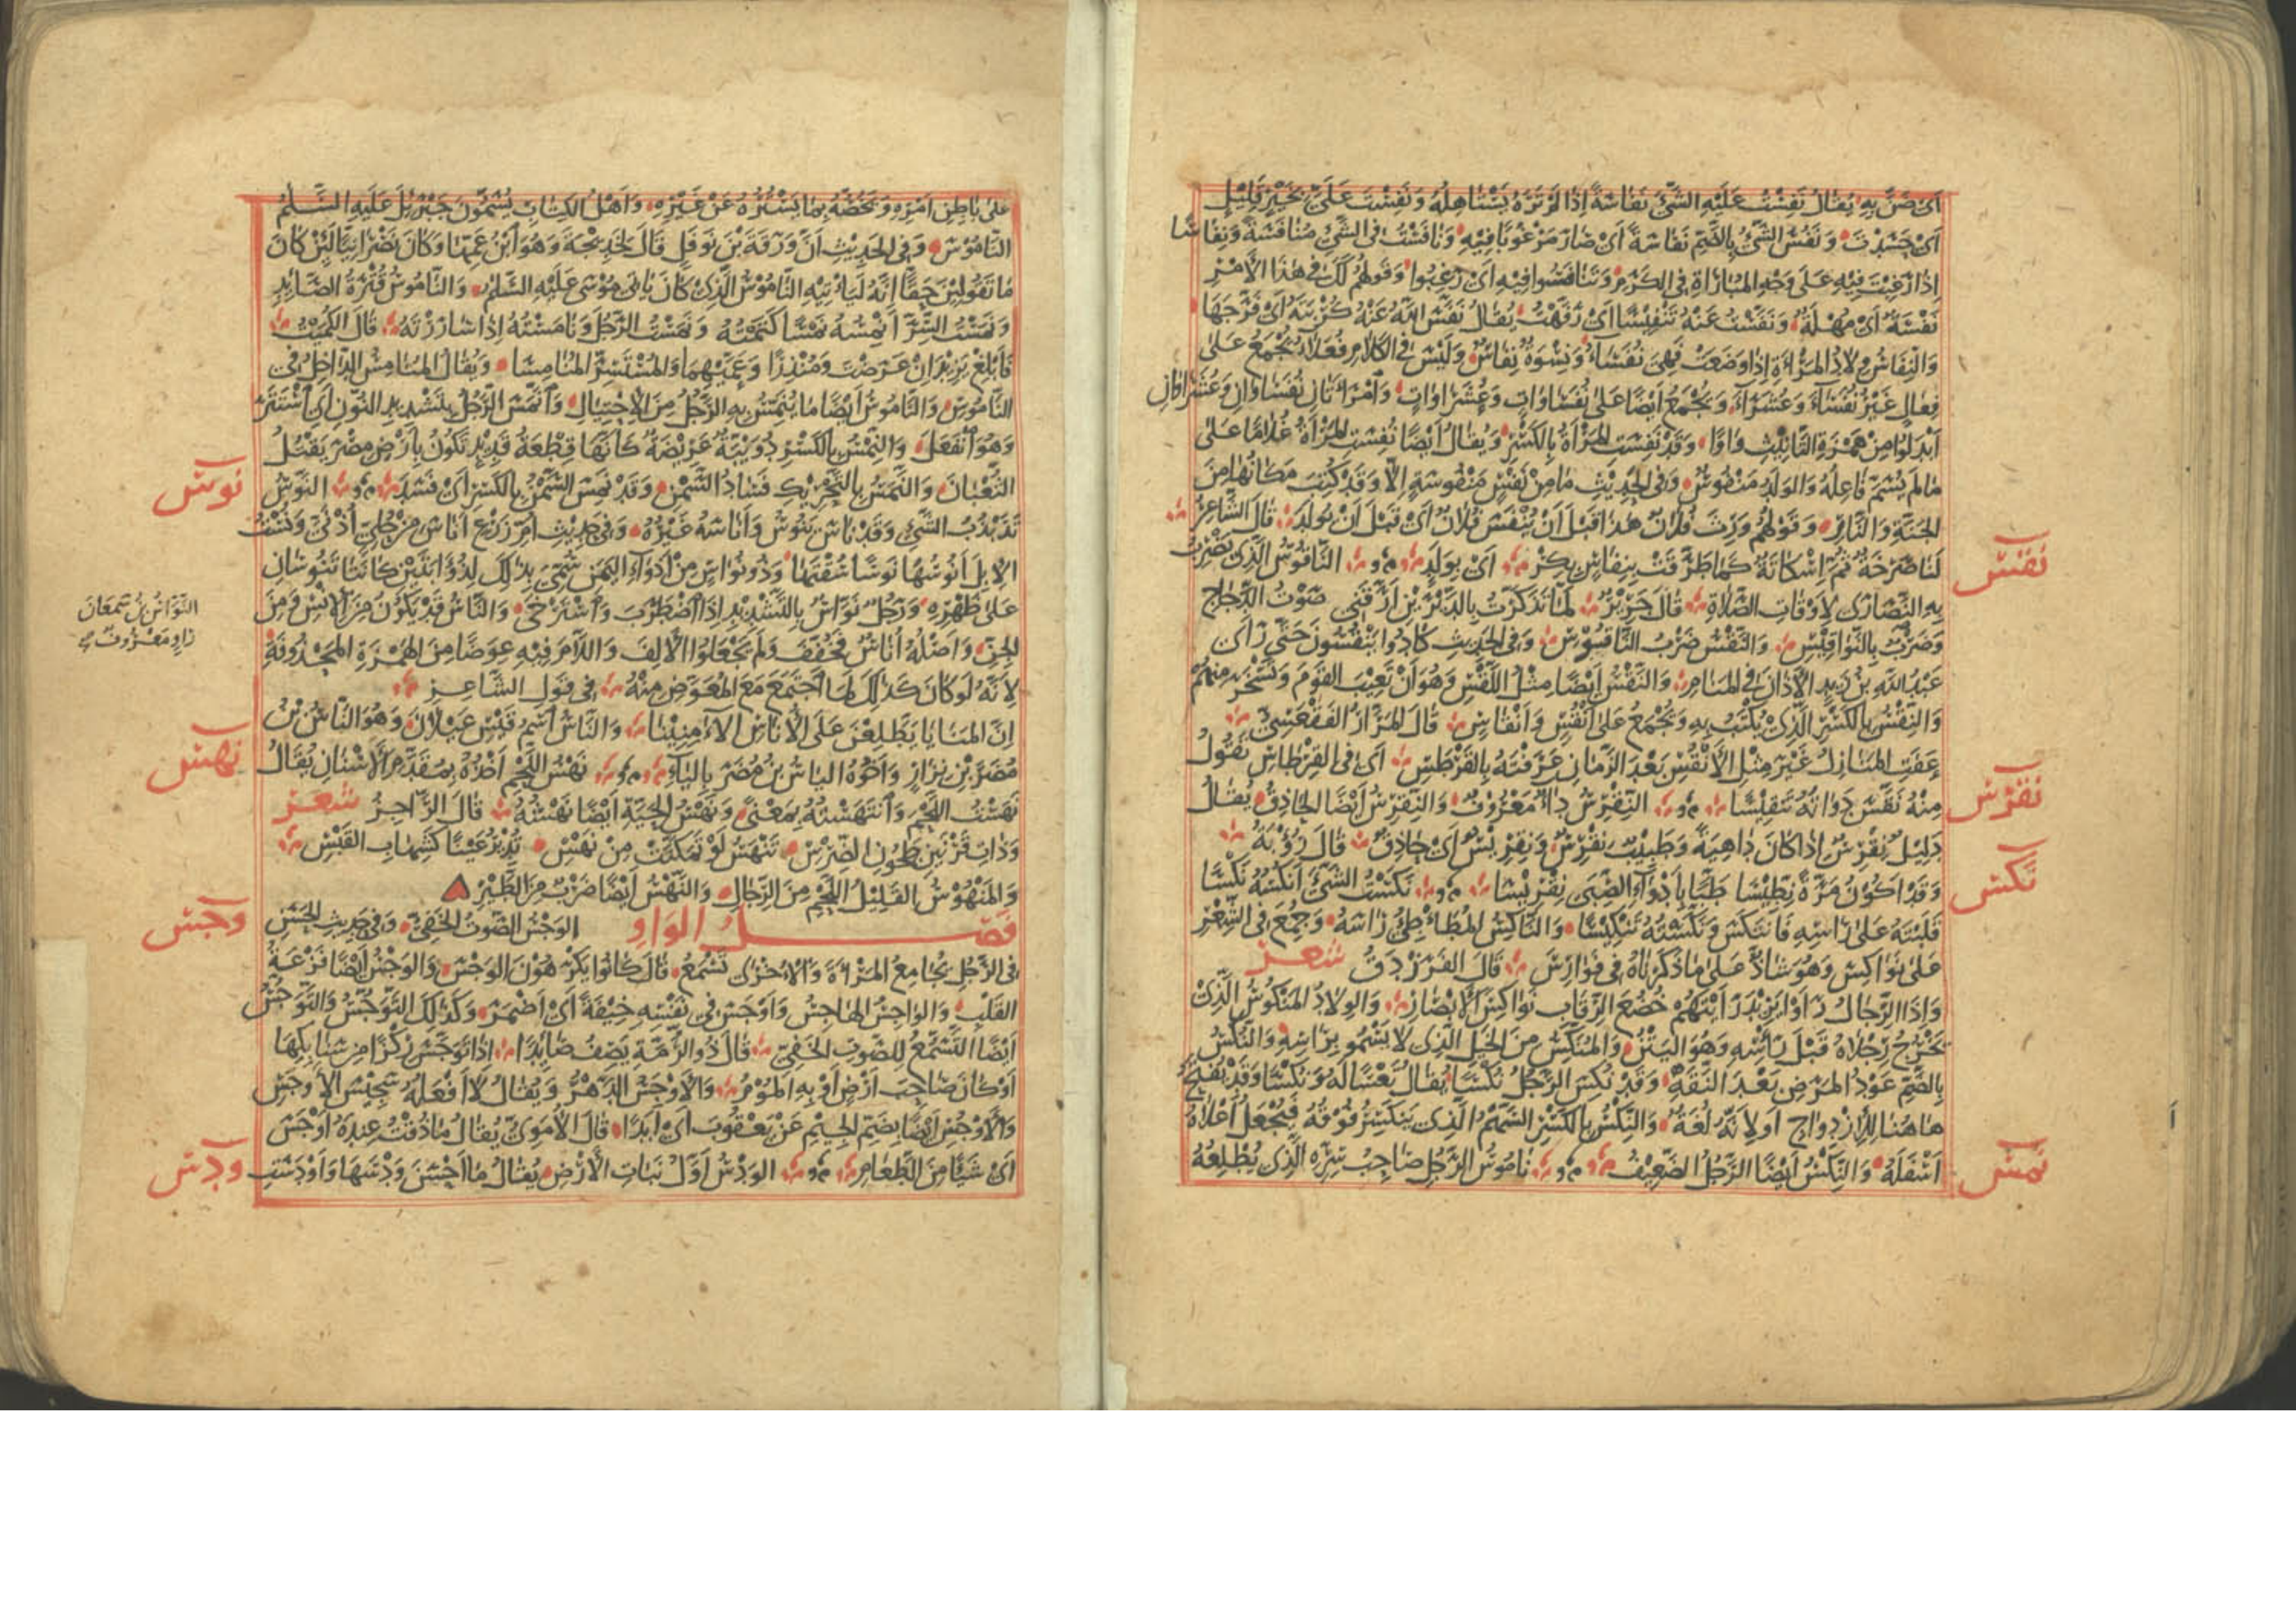 اى ضن به يقال نفست عليه الشئ نفاسة اذا لم تره يستاهله ونفست على بخير قليل
اى حسدت ونفس الشئ بالضم نفاسة اى صار مرغوبا فيه ونافست فى الشئ منافسة ونفاسا
اذا رغبت فيه على وجه المباراة فى الكرم وتنافسوا فيه اى رغبوا وقولهم لك فى هذا الامر
نفسة اى مهلة ونفست عنه تنفيسا اى رفهت يقال نفس الله عنه كربته اى فرجها
والنفاس ولاد المراة اذا وضعت فهى نفساء ونسوة نفاس وليس فى الكلام فعلاء يجمع على
فعال غير نفساء وعشراء ويجمع ايضا على نفساوات وعشراوات وامراتان نفساوان وعشراوان
ابدلوا من همزة التانيث واوا وقد نفست المراة بالكسر ويقال ايضا نفست المراة غلاما على
ما لم يسم فاعله والولد منفوس وفى الحديث ما من نفس منفوسة الا وقد كتب مكانها من
الجنة والنار وقولهم ورث فلان هذا قبل ان ينفس فلان اى قبل ان يولد قال الشاعر
لنا صرخة ثم اسكاتة كما طرقت بنفاس بكر اى بولد الناقوس الذى يضرب
نقس
به النصارى لاوقات الصلاة قال جرير لما تذكرت بالديرين ارقنى صوت الدجاج
وضرب بالنواقيس والنقس ضرب الناقوس وفى الحديث كادوا ينقسون حتى راى
عبد الله بن زيد الاذان فى المنام والنقس ايضا مثل اللقس وهو ان تعيب القوم وتسخر منهم
والنقس بالكسر الذى يكتب به ويجمع على انقس وانقاس قال المرار الفقعسى
عفت المنازل غير مثل الانقس بعد الزمان عرفته بالقرطس اى فى القرطاس تقول
منه نقس دواته تنقيسا النقرس داء معروف والنقرس ايضا الحاذق يقال
نقرس
دليل نقرس اذا كان داهية وطبيب نقرس ونقريس اى حاذق قال رؤبة
وقد اكون مرة نطيسا طبا بادواء الصبى نقريسا نكست الشئ انكسه نكسا
نكس
قلبته على راسه فانتكس ونكسته تنكيسا والناكس المطاطئ راسه وجمع فى الشعر
على نواكس وهو شاذ على ما ذكرناه فى فوارس قال الفرزدق شعر
واذا الرجال راوا يزيد رايتهم خضع الرقاب نواكس الابصار والولاد المنكوس الذى
تخرج رجلاه قبل راسه وهو اليتن والمنكس من الخيل الذى لا يسمو براسه والنكس
بالضم عود المرض بعد النقه وقد نكس الرجل نكسا يقال تعسا له ونكسا وقد يفتح
هاهنا للازدواج او لانه لغة والنكس بالكسر السهم الذى ينكسر فوقه فيجعل اعلاه
اسفله والنكس ايضا الرجل الضعيف ناموس الرجل صاحب سره الذى يطلعه
نمس
على باطن امره ويخصه بما يستره عن غيره واهل الكتاب يسمون جبرئل عليه السلم
الناموس وفى الحديث ان ورقة بن نوفل قال لخديجة وهو ابن عمها وكان نصرانيا لئن كان
ما تقولين حقا انه لياتيه الناموس الذى كان ياتى موسى عليه السلم والناموس قترة الصائد
ونمست السر انمسه نمسا كتمته ونمست الرجل ونامسته اذا ساررته قال الكميت
فابلغ يزيد ان عرضت ومنذرا وعميهما والمستسر المنامسا ويقال المنامس الداخل فى
الناموس والناموس ايضا ما ينمس به الرجل من الاحتيال وانمس الرجل بتشديد النون اى استتر
وهو انفعل والنمس بالكسر دويبة عريضة كانها قطعة قديد تكون بارض مصر يقتل
الثعبان والنمس بالتحريك فساد السمن وقد نمس السمن بالكسر اى فسد النوس
نوس
تذبذب الشئ وقد ناس ينوس واناسه غيره وفى حديث ام زرع اناس من حلى اذنى ونست
الابل انوسها نوسا سقتها وذو نواس من اذواء اليمن سمى بذلك لذؤابتين كانتا تنوسان
على ظهره ورجل نواس بالتشديد اذا اضطرب واسترخى والناس قد يكون من الانس ومن
النواس بن سمعان
راو معروف
الجن واصله اناس فخفف ولم يجعلوا الالف واللام فيه عوضا من الهمزة المحذوفة
لانه لو كان كذلك لما اجتمع مع المعوض منه فى قول الشاعر
ان المنايا يطلعن على الاناس الآمنينا والناس اسم قيس عيلان وهو الناس بن
مضر بن نزار واخوه الياس بن مضر بالياء نهس اللحم اخذه بمقدم الاسنان يقال
نهس
نهست اللحم وانتهسته بمعنى ونهس الحية ايضا نهسه قال الراجز شعر
وذات قرنين طحون الضرس تنهس لو تمكنت من نهس تدير عينا كشهاب القبس
والمنهوس القليل اللحم من الرجال والنهس ايضا ضرب من الطير
فصل الواو الوجس الصوت الخفى وفى حديث الحسن
وجس
فى الرجل يجامع المراة والاخرى تسمع قال كانوا يكرهون الوجس والوجس ايضا فزعة
القلب والواجس الهاجس واوجس فى نفسه خيفة اى اضمر وكذلك التوجس والتوجس
ايضا التسمع للصوت الخفى قال ذو الرمة يصف صائدا اذا توجس ركزا من سنابكها
او كان صاحب ارض او به الموم والاوجس الدهر ويقال لا افعله سجيس الاوجس
والاوجس ايضا بضم الجيم عن يعقوب اى ابدا قال الاموى يقال ما ذقت عنده اوجس
اى شيئا من الطعام الودس اول نبات الارض يقال ما احسن ودسها واودست
ودس